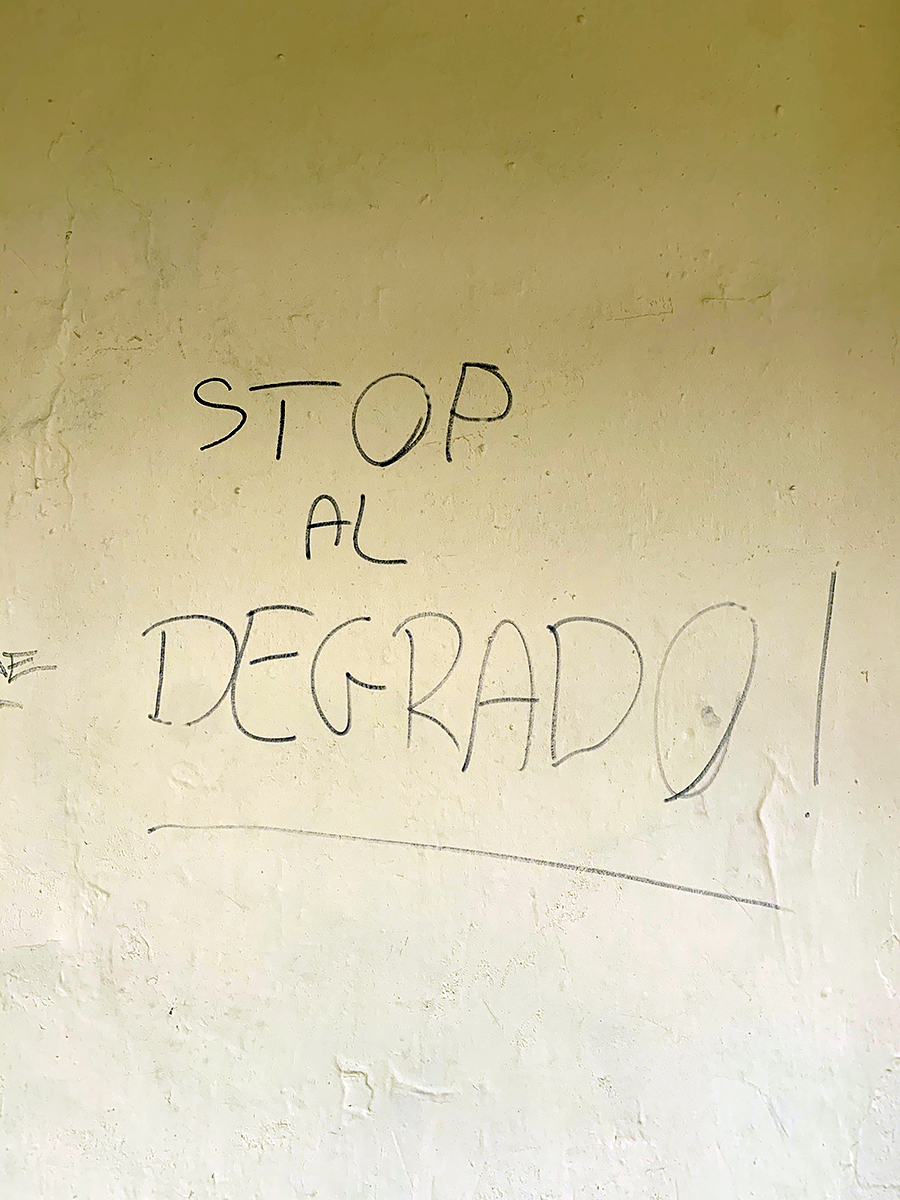 STOP
AL
DEGRADO!